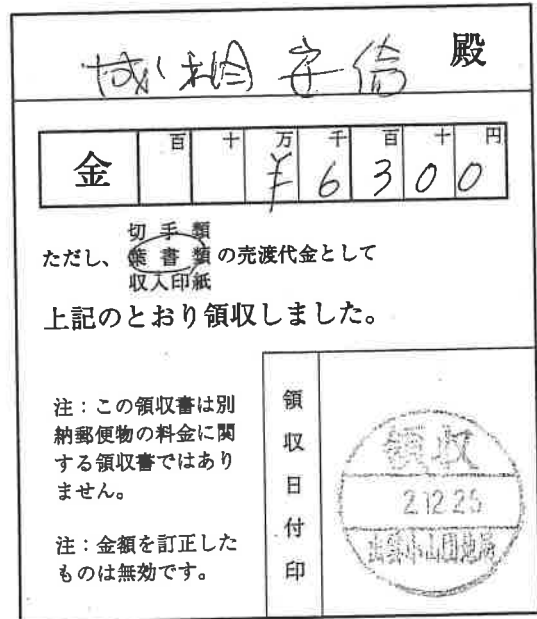 殿
金 百 十 万 千 百 十 円
¥ 6 3 0 0
切手類
ただし、 葉書類 の売渡代金として
収入印紙
上記のとおり領収しました。
注：この領収書は別
納郵便物の料金に関
する領収書ではあり
ません。
注：金額を訂正した
ものは無効です。
領収日付印
領収
2.12.25